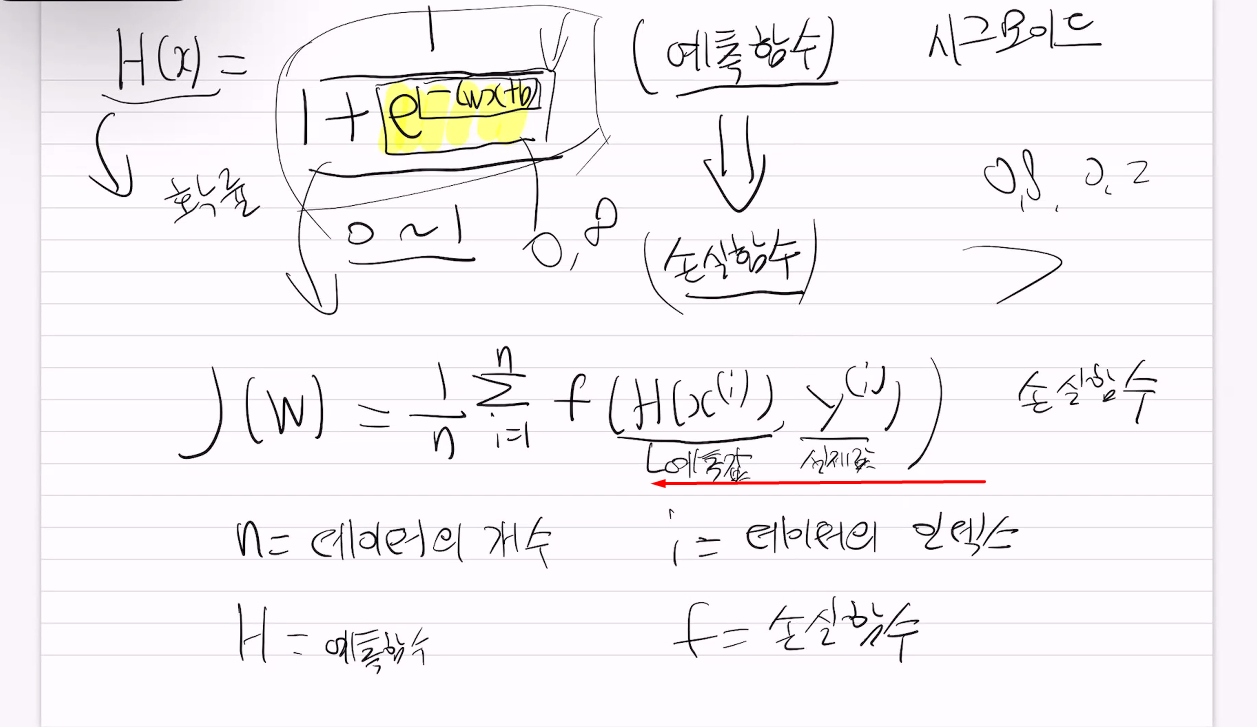 H(x) = 1 / (1 + e^-(wx+b)) (예측함수) 시그모이드
확률 0 ~ 1 0,8 0,8, 0,2
(손실함수)
J(W) = 1/n Σ_{i=1}^{n} f(H(x^(i)), y^(i)) 손실함수
예측값 실제값
n = 데이터의 개수 i = 데이터의 인덱스
H = 예측함수 f = 손실함수